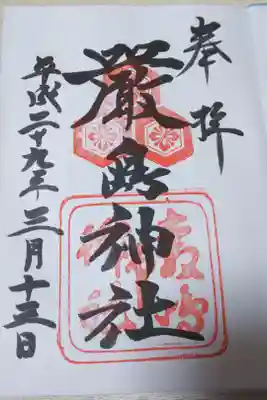 奉拝
厳島神社
平成二十九年三月十三日
嚴島神社